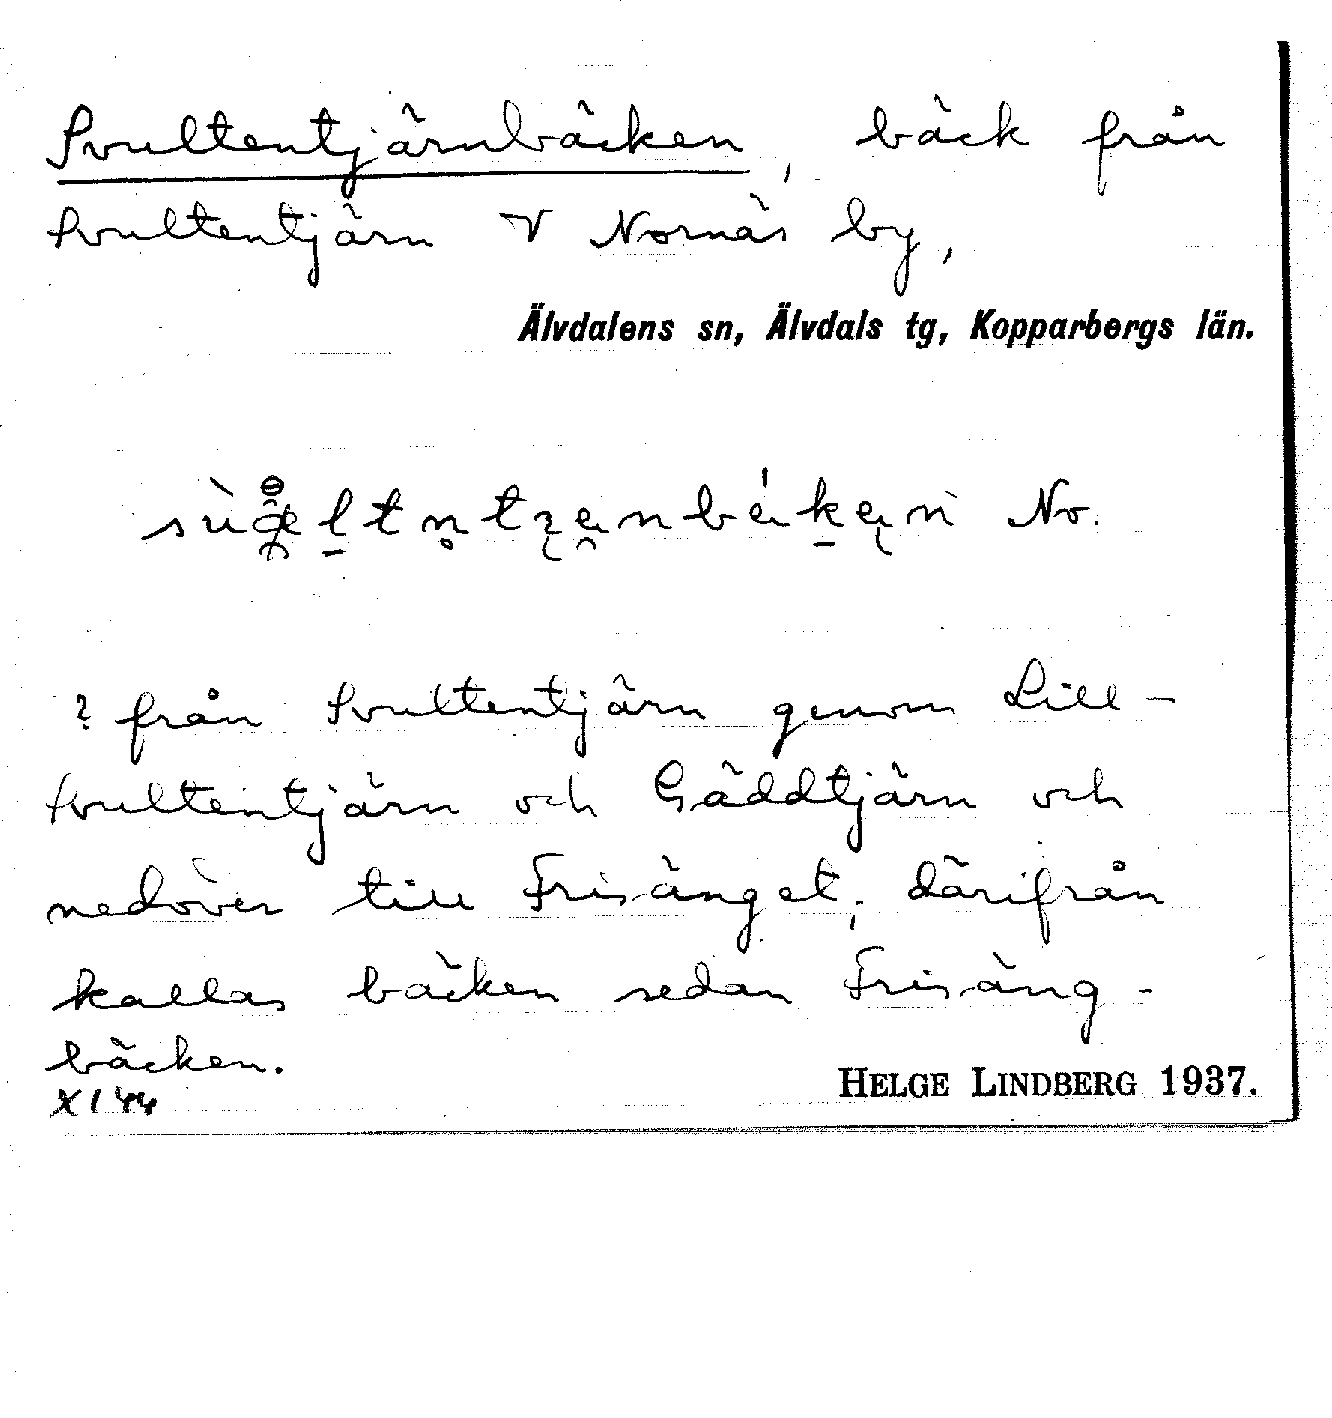 Svultentjärnbäcken, bäck från
Svultentjärn V Nornäs by,
Älvdalens sn, Älvdals tg, Kopparbergs län.
No.
? från Svultentjärn genom Lill-
svultentjärn och Gäddtjärn och
nedöver till Frisänget, därifrån
kallas bäcken sedan Frisäng-
bäcken.
X I 44
HELGE LINDBERG 1937.